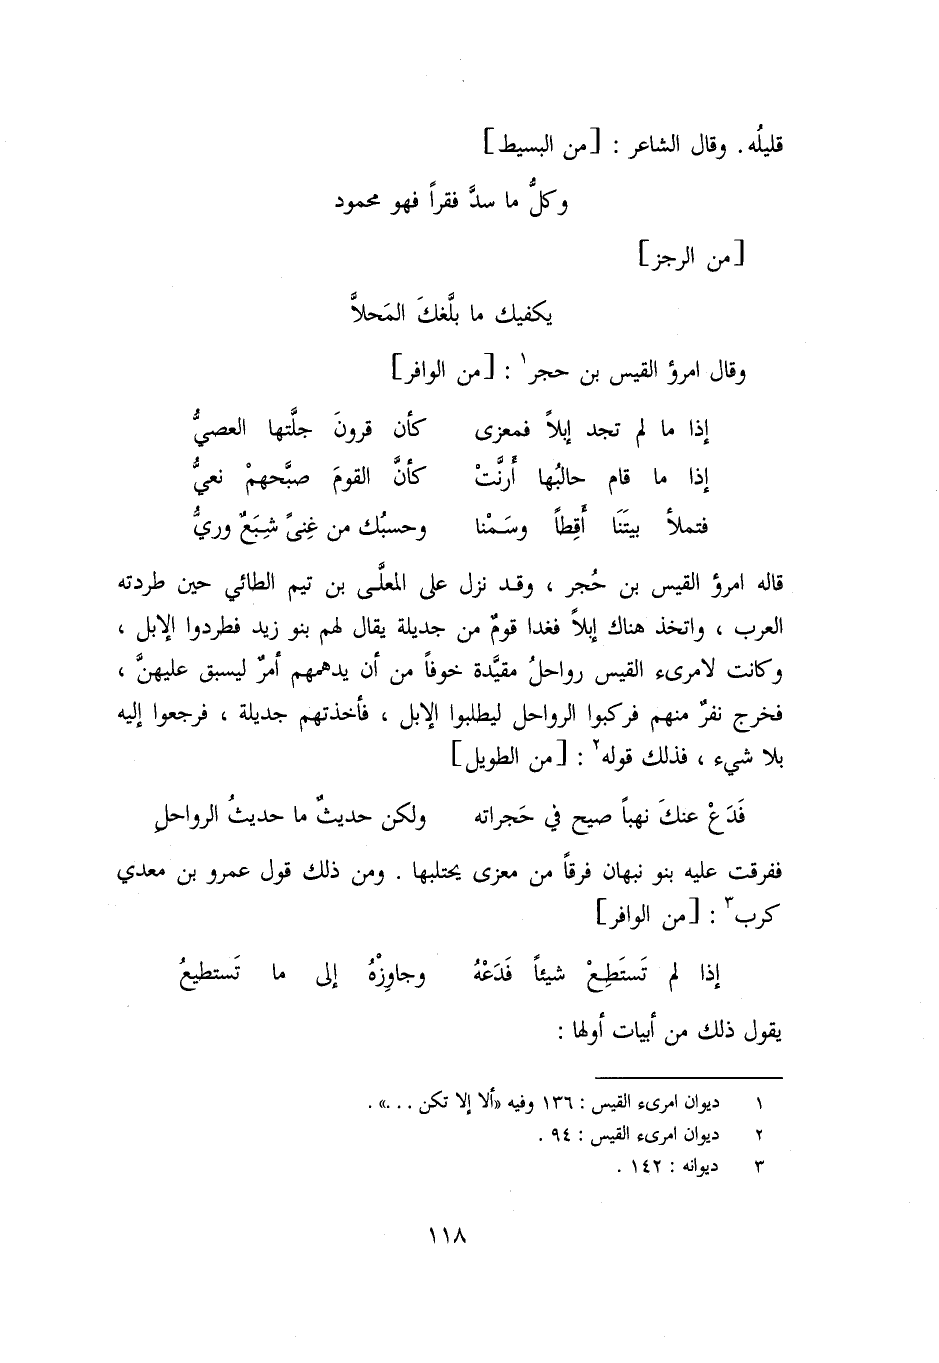 قليلُه . وقال الشاعر : [من البسيط]
وكلُّ ما سدَّ فقراً فهو محمود
[من الرجز]
يكفيك ما بلَّغكَ المَحلاَّ
وقال امرؤ القيس بن حجر١ : [من الوافر]
إذا ما لم تجد إبلاً فمعزى كأن قرونَ جلَّتها العصيُّ
إذا ما قام حالبُها أَرنَّتْ كأنَّ القومَ صبَّحهمْ نعيُّ
فتملأ بيتَنَا أَقِطاً وسَمْنا وحسبُك من غِنىً شِبَعٌ وريُّ
قاله امرؤ القيس بن حُجر ، وقد نزل على المعلَّى بن تيم الطائي حين طردته
العرب ، واتخذ هناك إبلاً فغدا قومٌ من جديلة يقال لهم بنو زيد فطردوا الإبل ،
وكانت لامرىء القيس رواحلُ مقيَّدة خوفاً من أن يدهمهم أمرٌ ليسبق عليهنَّ ،
فخرج نفرٌ منهم فركبوا الرواحل ليطلبوا الإبل ، فأخذتهم جديلة ، فرجعوا إليه
بلا شيء ، فذلك قوله٢ : [من الطويل]
فَدَعْ عنكَ نهباً صيح في حَجراته ولكن حديثٌ ما حديثُ الرواحلِ
ففرقت عليه بنو نبهان فرقاً من معزى يحتلبها . ومن ذلك قول عمرو بن معدي
كرب٣ : [من الوافر]
إذا لم تَستَطِعْ شيئاً فَدَعْهُ وجاوِزْهُ إلى ما تَستطيعُ
يقول ذلك من أبيات أولها :
١ ديوان امرىء القيس : ١٣٦ وفيه «ألا إلا تكن . . .» .
٢ ديوان امرىء القيس : ٩٤ .
٣ ديوانه : ١٤٢ .
١١٨